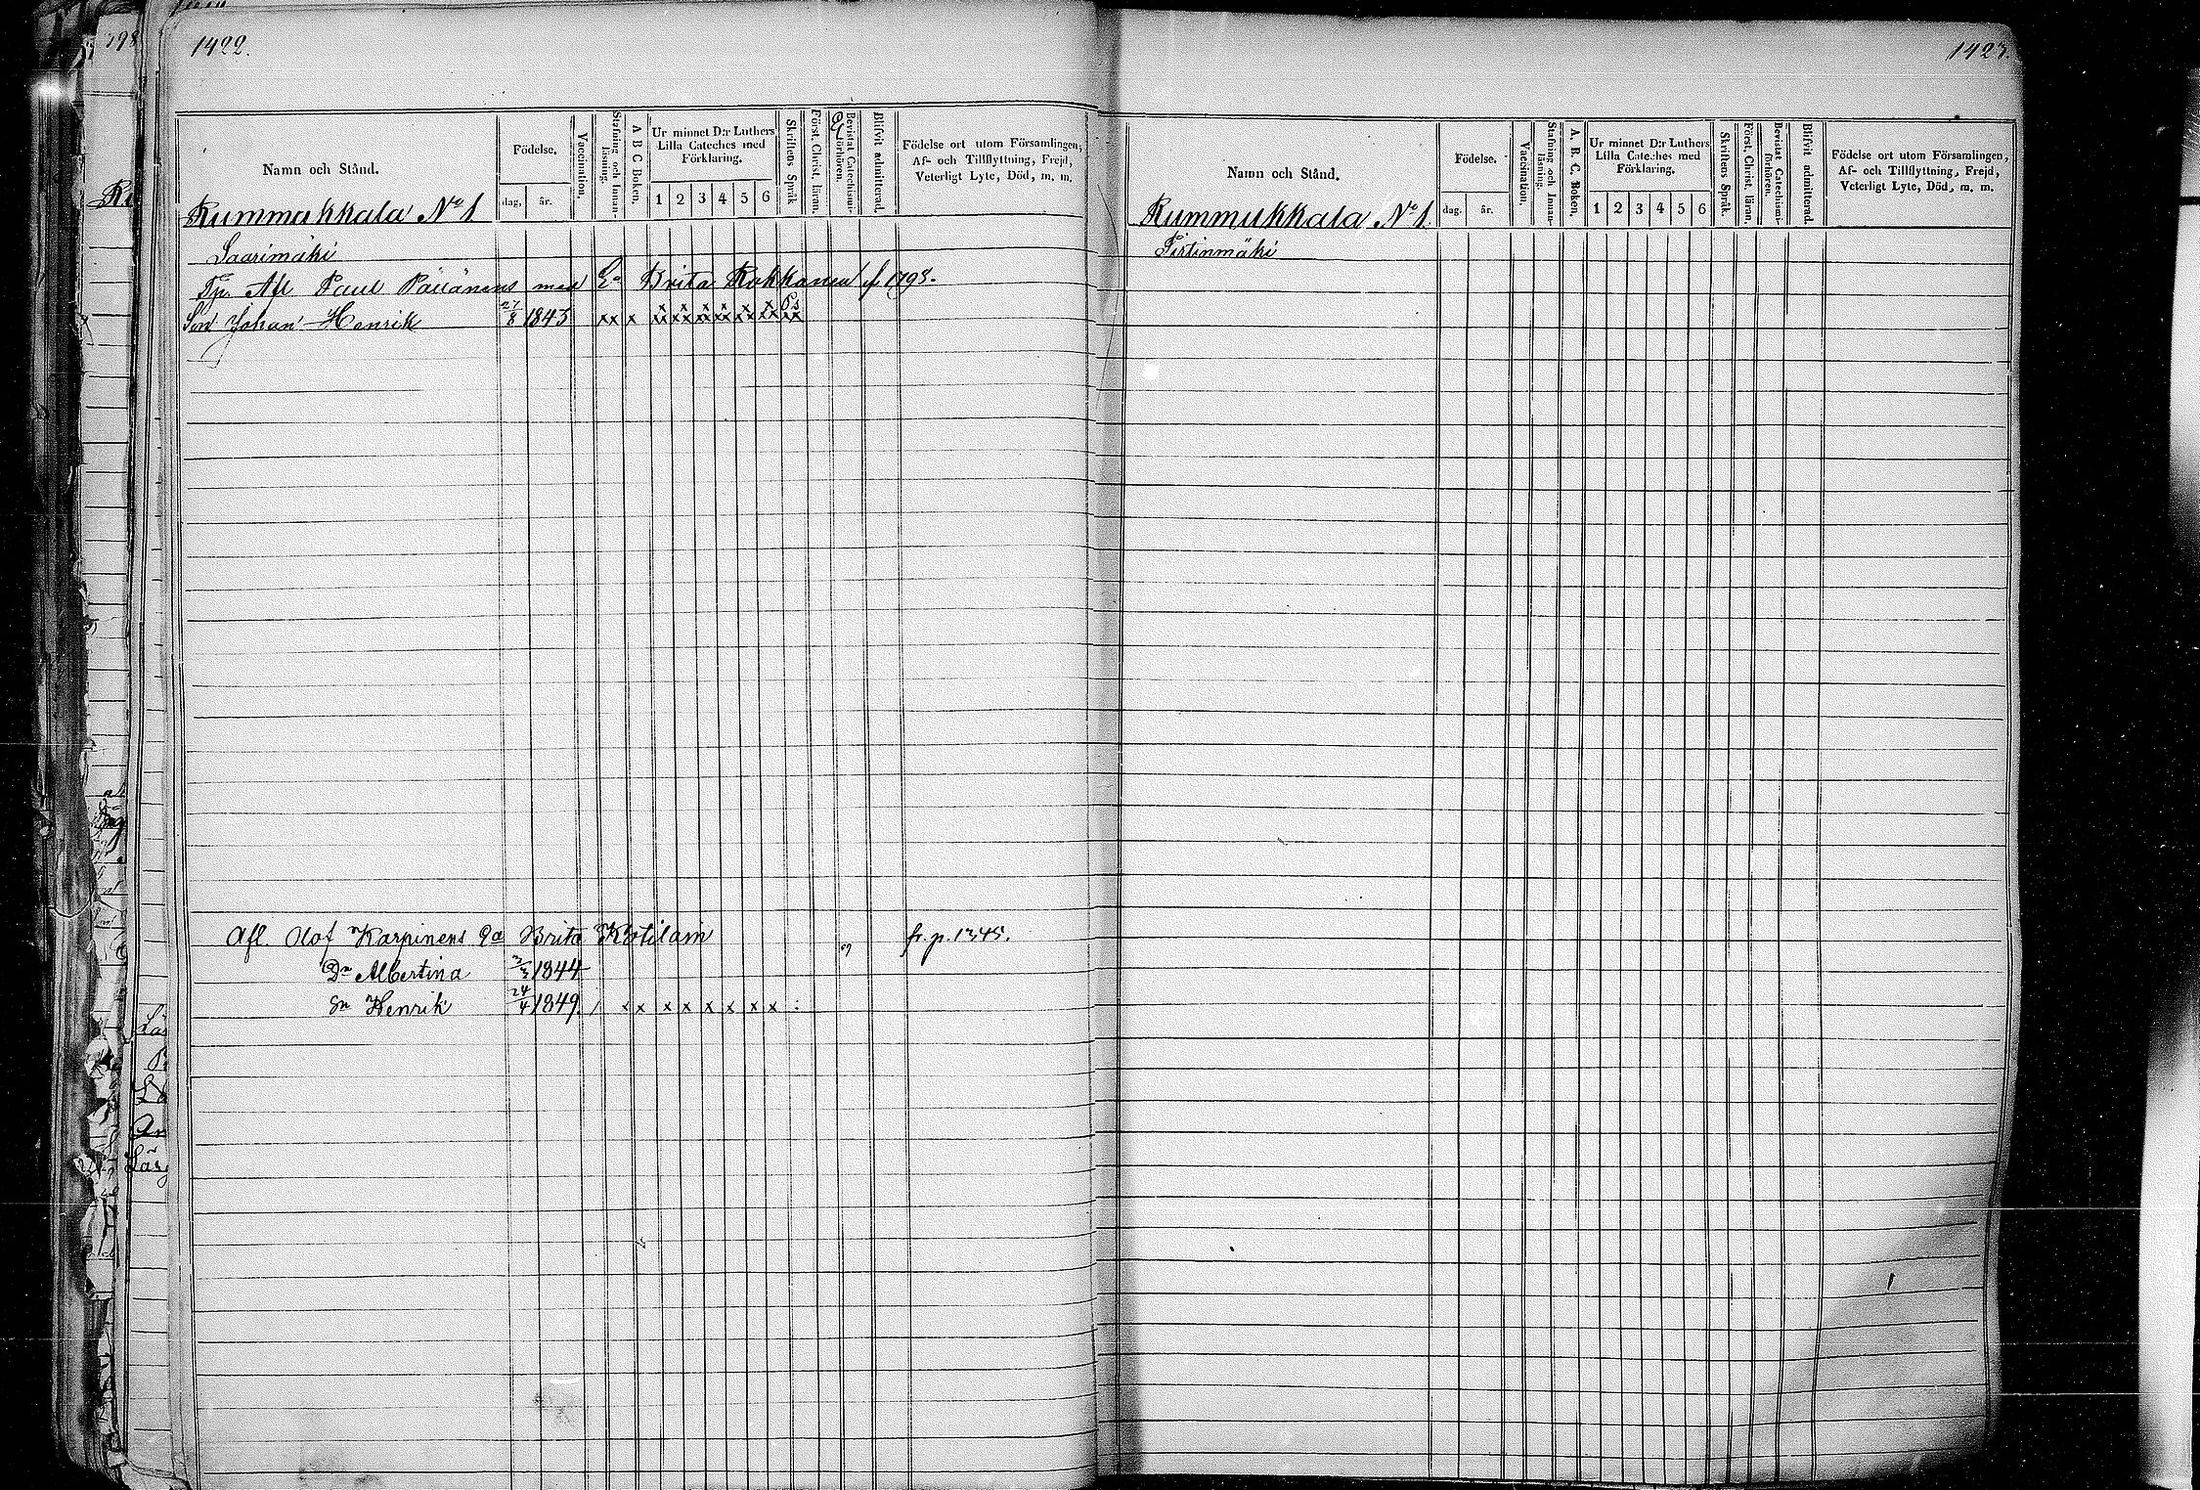 1422.
Namn och Stånd.
Födelse.
dag.
år.
Vaccination.
Stafning och Innan-läsning.
A B C Boken.
Ur minnet D:r Luthers Lilla Cateches med Förklaring.
1 2 3 4 5 6
Skriftens Språk
Först. Christ. läran.
Bevistat Catechismi-förhören.
Blifvit admitterad.
Födelse ort utom Församlingen, Af- och Tillflyttning, Frejd, Veterligt Lyte, Död, m. m.
Rummukkala No 1
Saarimäki
Afl Paul Päiänens Brita Kokkonen f 1793.
Son Johan Henrik 27/8 1843 xx x
Afl. Olof Karpinens Ea Brita Kotilain fr. p. 1345.
Dr Albertina 3/3 1844
Sn Henrik 24/4 1849. / x x x x x x x x
1423.
Namn och Stånd.
Födelse.
dag.
år.
Vaccination.
Stafning och Innan-läsning.
A. B. C. Boken.
Ur minnet D:r Luthers Lilla Cateches med Förklaring.
1 2 3 4 5 6
Skriftens Språk.
Först. Christ. läran.
Bevistat Catechismi-förhören.
Blifvit admitterad.
Födelse ort utom Församlingen, Af- och Tillflyttning, Frejd, Veterligt Lyte, Död, m. m.
Rummukkala No 1.
Pirtinmäki